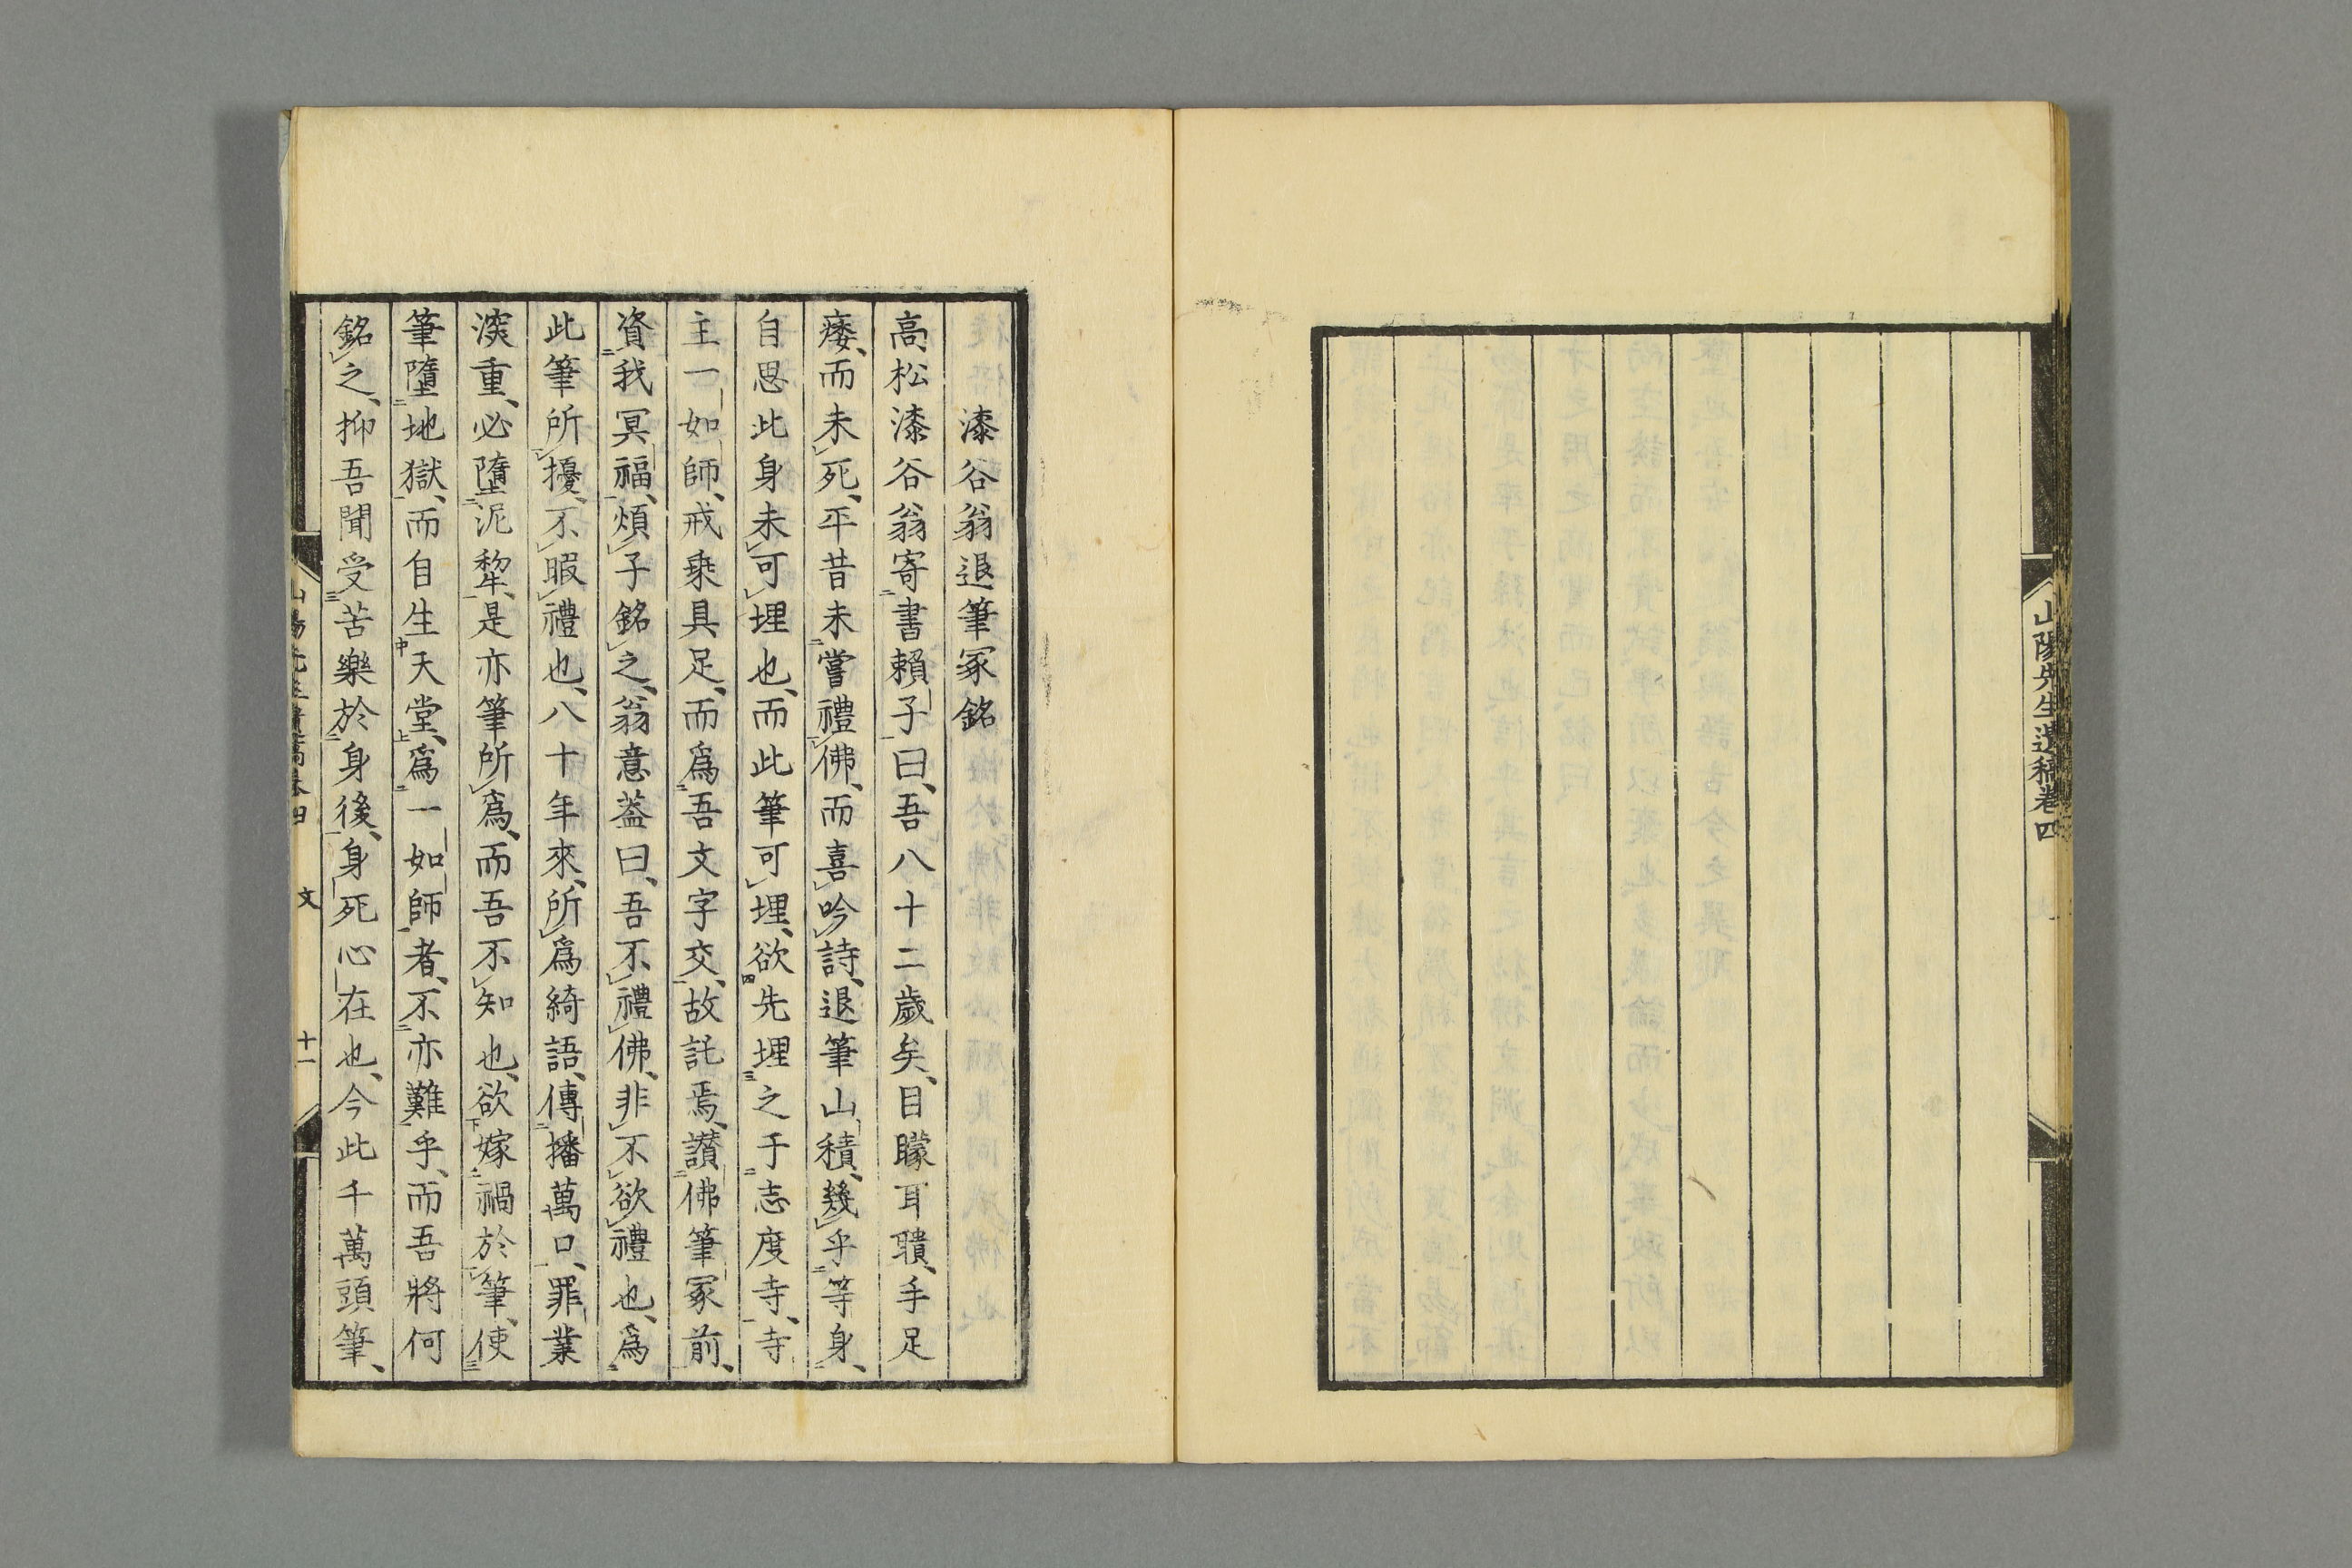 山陽先生遺稿卷四
漆谷翁退筆冢銘
高松漆谷翁寄書賴子曰、吾八十二歲矣、目矇耳聵、手足
痿、而未死、平昔未嘗禮佛、而喜吟詩、退筆山積、幾乎等身、
自思此身未可埋也、而此筆可埋、欲先埋之于志度寺、寺
主一如師、戒乘具足、而爲吾文字交、故託焉、讃佛筆冢前、
資我冥福、煩子銘之、翁意蓋曰、吾不禮佛、非不欲禮也、爲
此筆所擾、不暇禮也、八十年來、所爲綺語、傳播萬口、罪業
深重、必墮泥犂、是亦筆所爲、而吾不知也、欲嫁禍於筆、使
筆墮地獄、而自生天堂、爲一如師者、不亦難乎、而吾將何
銘之、抑吾聞受苦樂於身後、身死心在也、今此千萬頭筆、
山陽先生遺稿卷四 文 十一